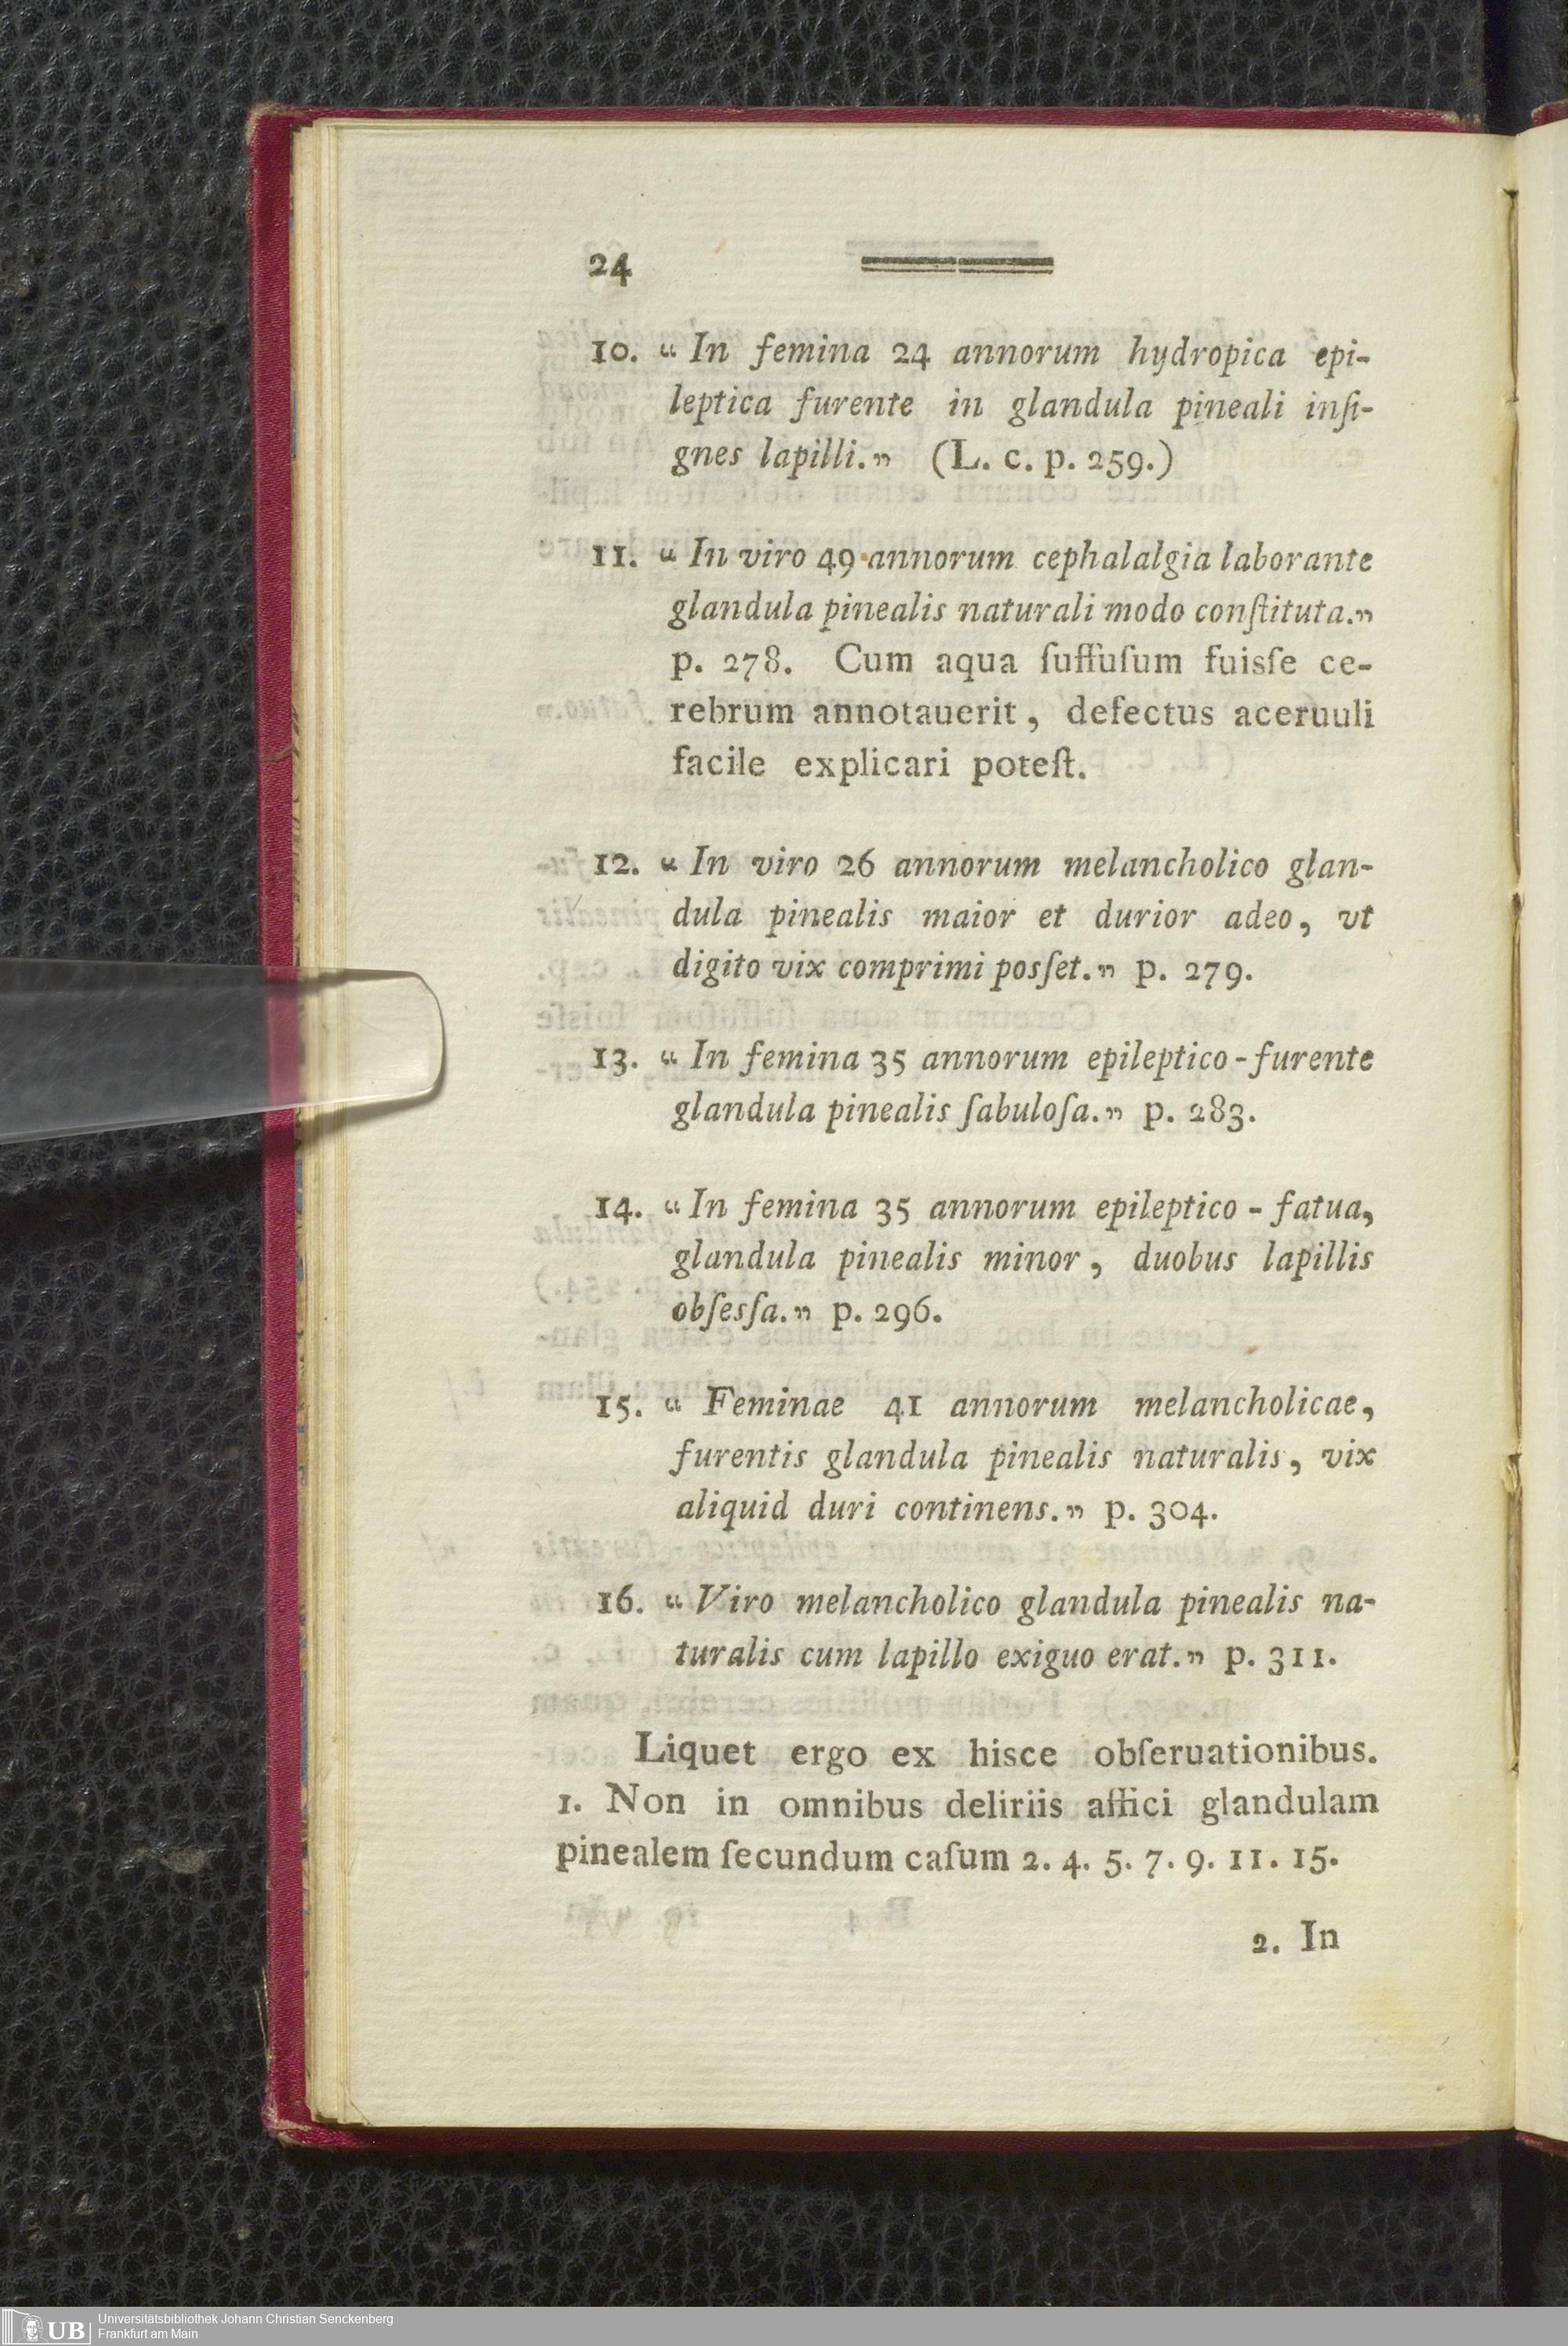 24
10. “ In femina 24 annorum hydropica epi-
leptica furente in glandula pineali inſi-
gnes lapilli.” (L. c. p. 259.)
11. “ In viro 49 annorum cephalalgia laborante
glandula pinealis naturali modo conſtituta.”
p. 278. Cum aqua ſuffuſum fuisſe ce-
rebrum annotauerit, defectus aceruuli
facile explicari poteſt.
12. “ In viro 26 annorum melancholico glan-
dula pinealis maior et durior adeo, vt
digito vix comprimi posſet.” p. 279.
13. “ In femina 35 annorum epileptico-furente
glandula pinealis ſabuloſa.” p. 283.
14. “ In femina 35 annorum epileptico-fatua,
glandula pinealis minor, duobus lapillis
obſesſa.” p. 296.
15. “ Feminae 41 annorum melancholicae,
furentis glandula pinealis naturalis, vix
aliquid duri continens.” p. 304.
16. “ Viro melancholico glandula pinealis na-
turalis cum lapillo exiguo erat.” p. 311.
Liquet ergo ex hisce obſeruationibus.
1. Non in omnibus deliriis affici glandulam
pinealem ſecundum caſum 2. 4. 5. 7. 9. 11. 15.
2. In
UB Universitätsbibliothek Johann Christian Senckenberg
Frankfurt am Main